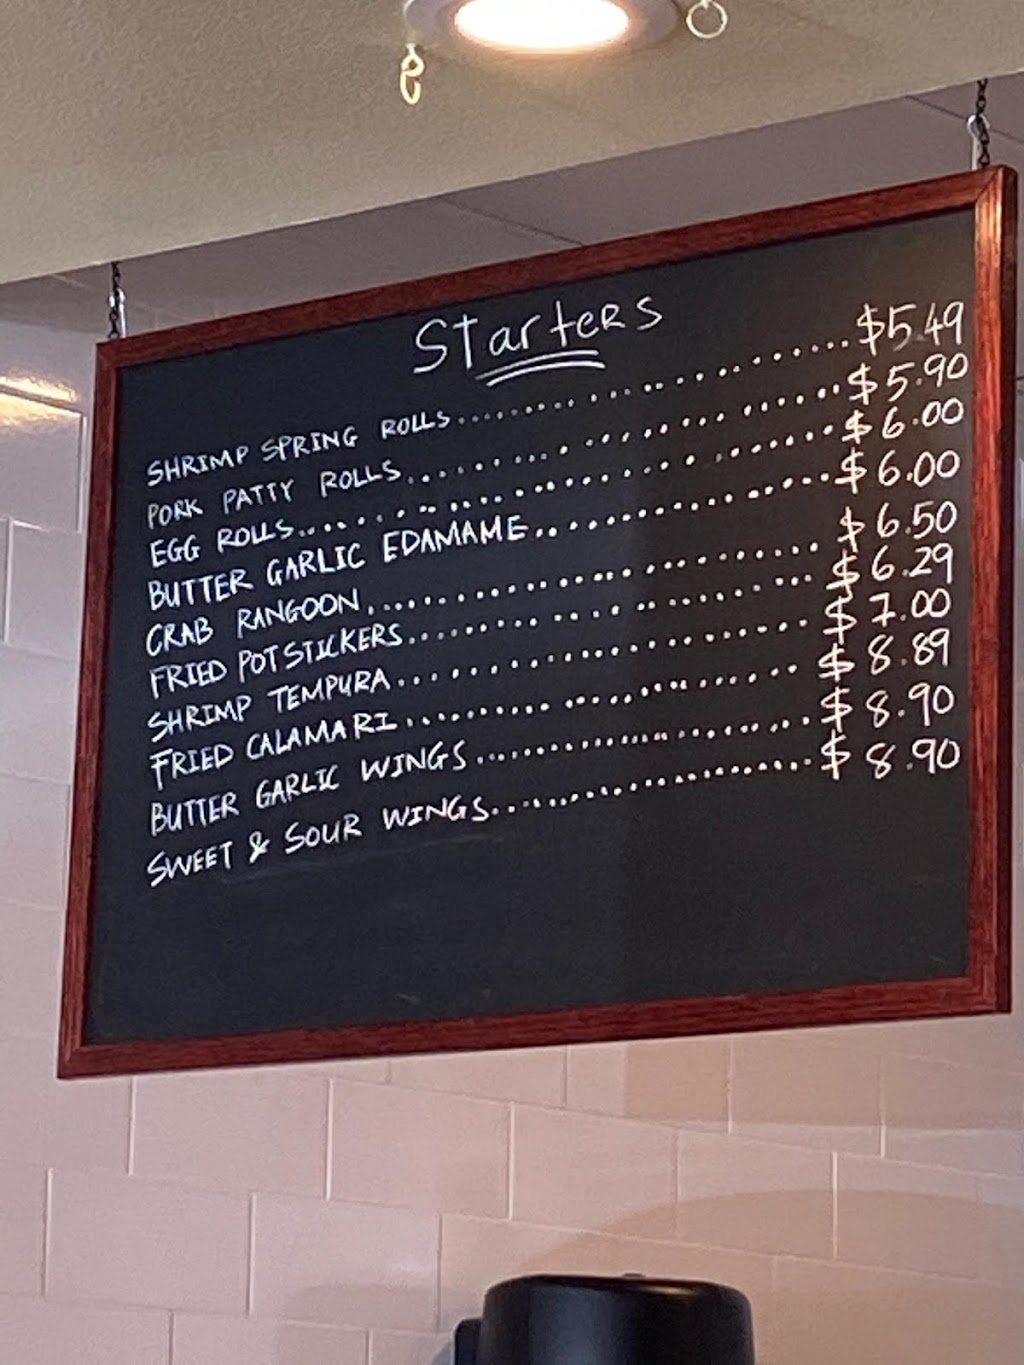 Starters
SHRIMP SPRING ROLLS.................$5.49
PORK PATTY ROLLS.................$5.90
EGG ROLLS.................$6.00
BUTTER GARLIC EDAMAME.................$6.00
CRAB RANGOON.................$6.50
FRIED POTSTICKERS.................$6.29
SHRIMP TEMPURA.................$7.00
FRIED CALAMARI.................$8.89
BUTTER GARLIC WINGS.................$8.90
SWEET & SOUR WINGS.................$8.90